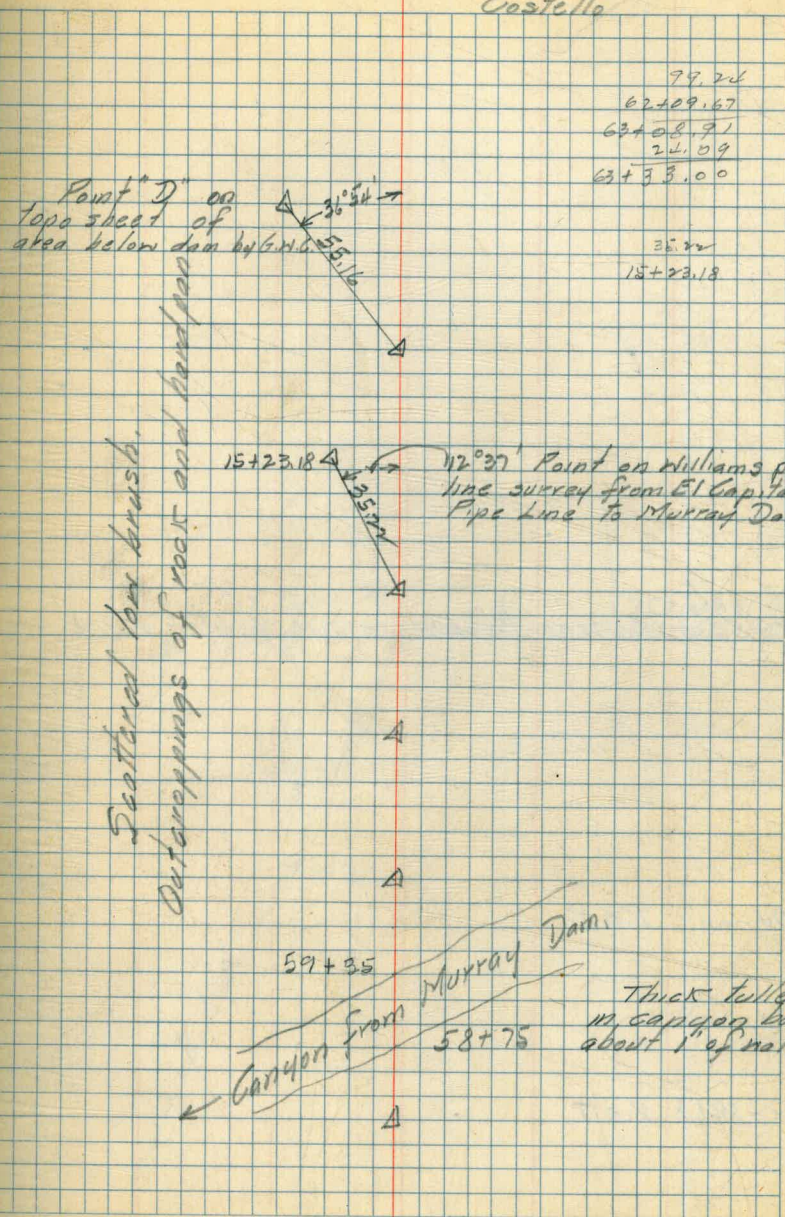 Costello
99.24
62+09.67
63+08.91
24.09
63+33.00
35.22
15+23.18
Point "D" on
topo sheet of
area below dam by G.W.C.
36°54'
55.16
15+23.18
35.22
12°37' Point on Williams
line survey from El
Pipe Line to Murray
Scattered low brush.
Outcroppings of rock and hard pan
59+35
Canyon from Murray Dam.
58+75
Thick
in canyon
about 1" of